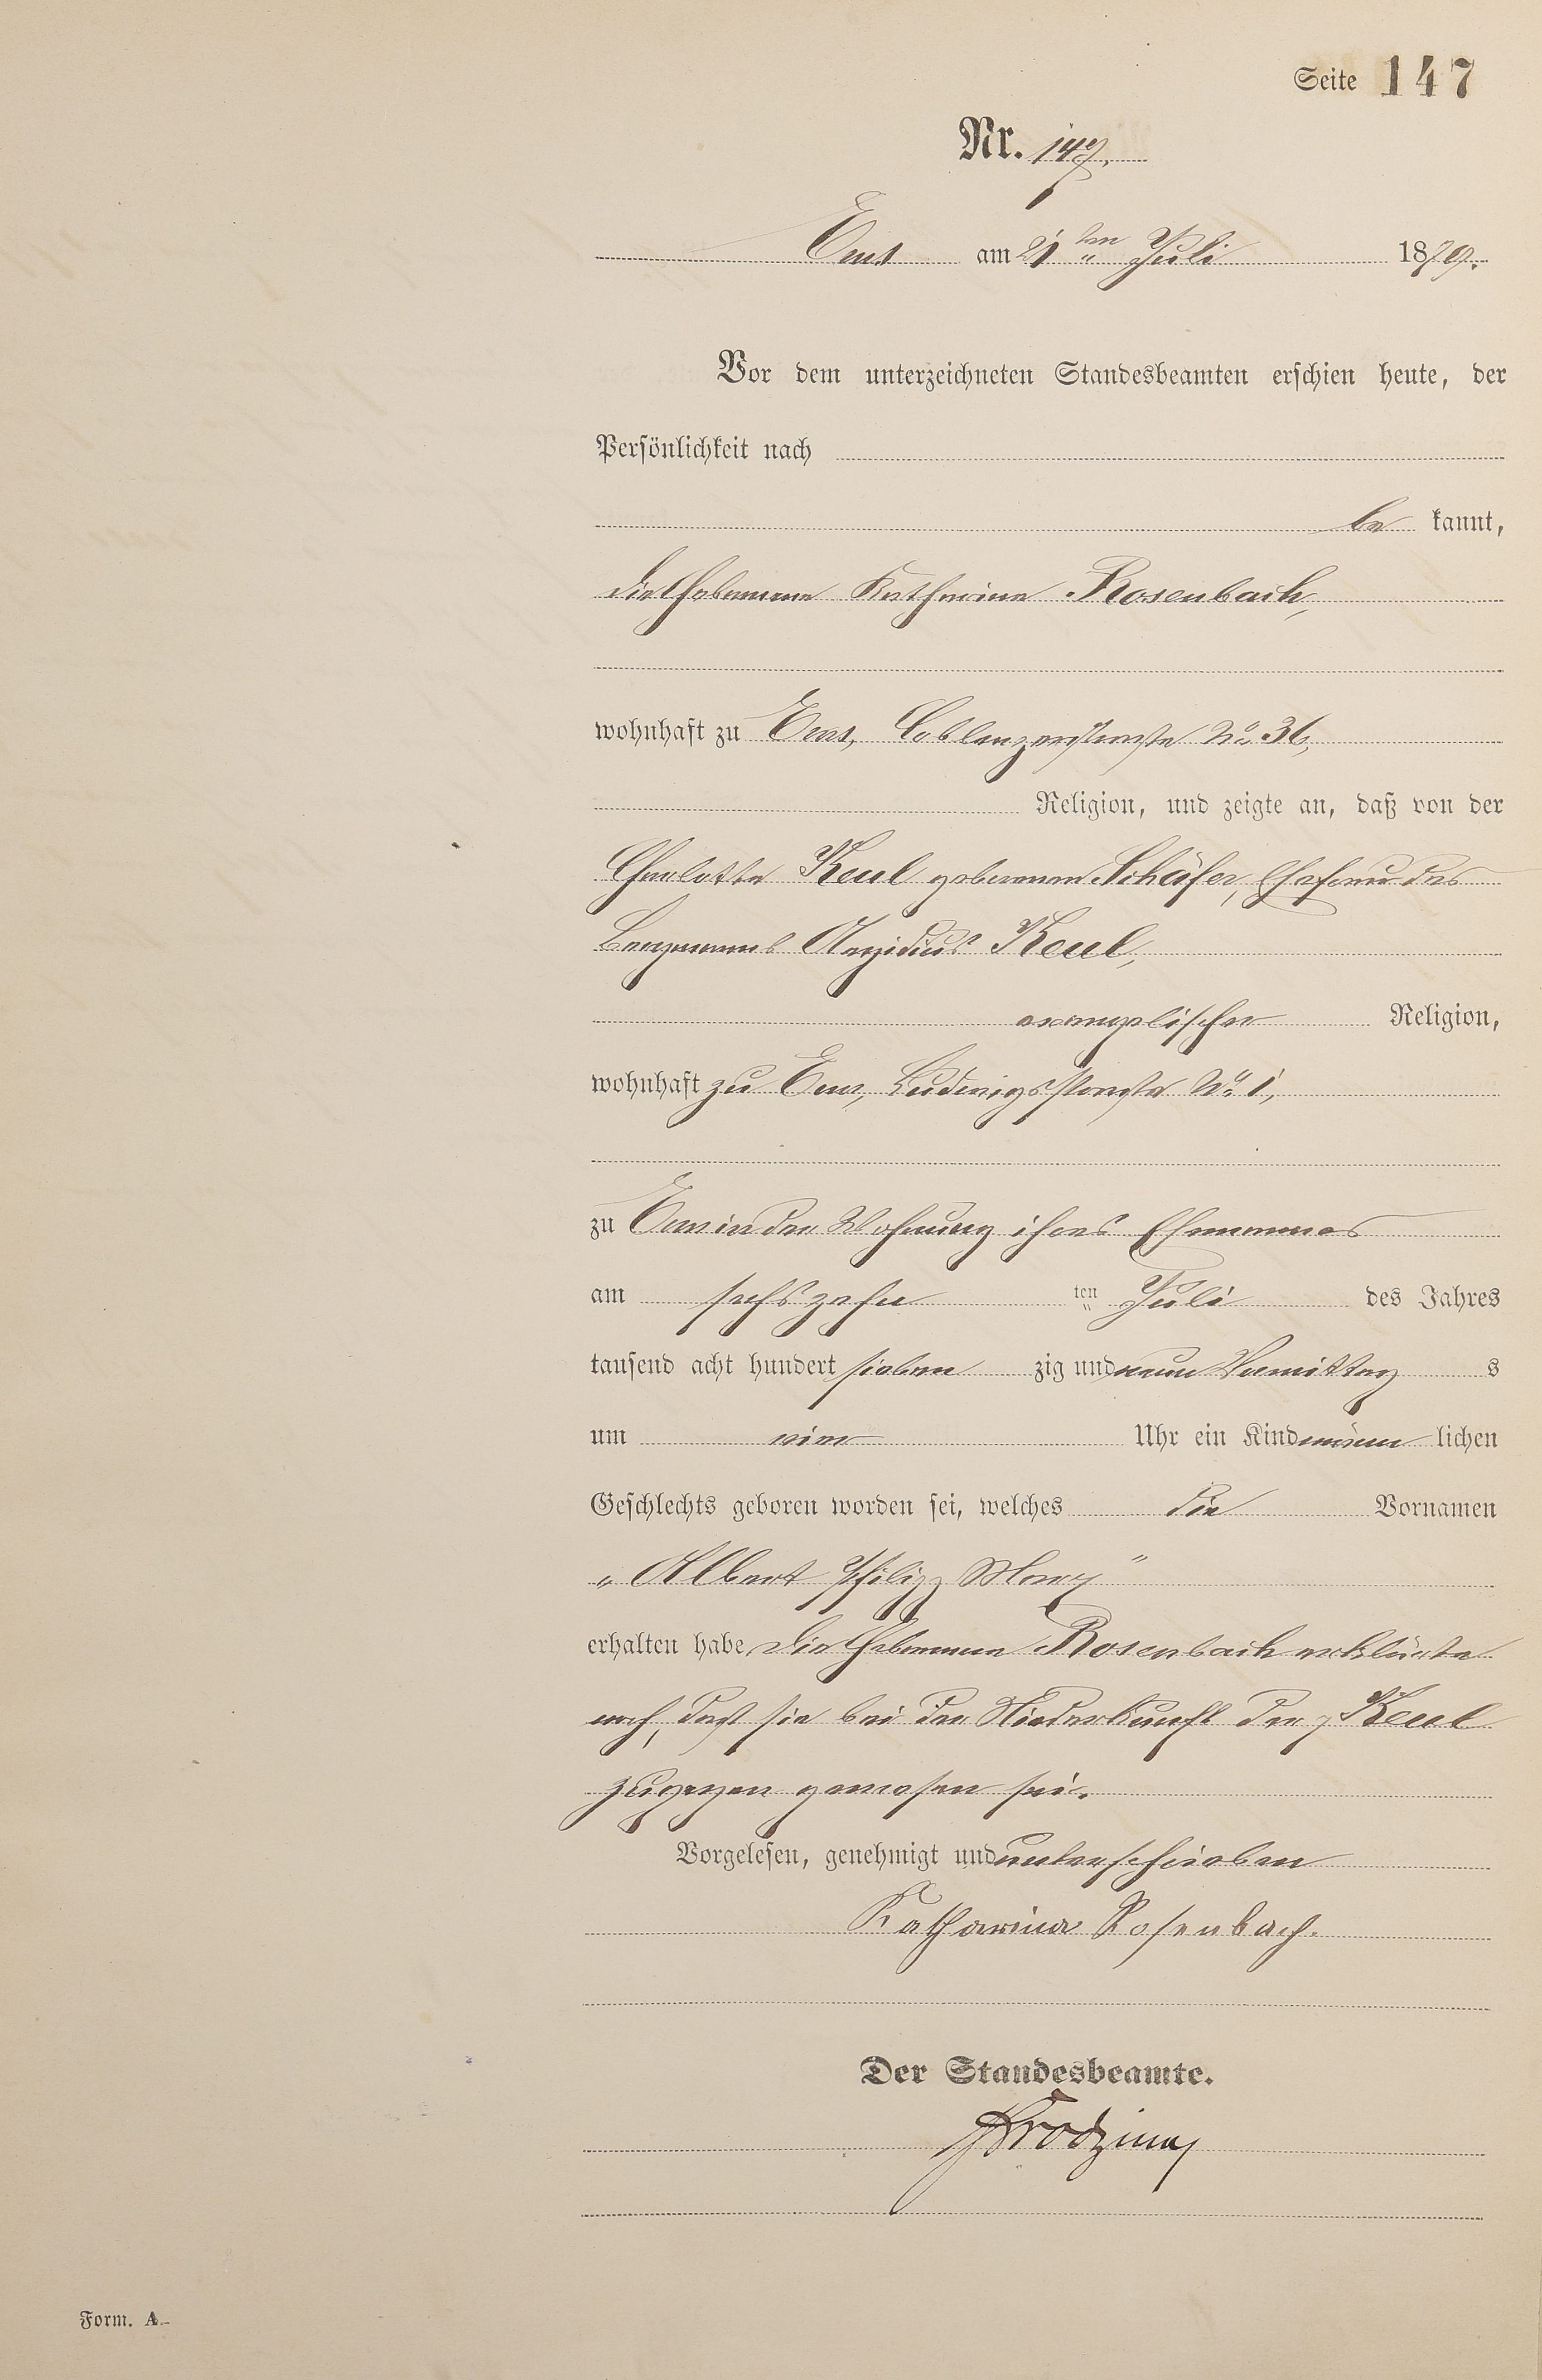 Seite 147
Nr. 147.
Ems am 21ten Juli 1879.
Vor dem unterzeichneten Standesbeamten erschien heute, der
Persönlichkeit nach
be kannt,
die Hebamme Katharina Rosenbach,
wohnhaft zu Ems, Coblenzerstraße No. 36,
Religion, und zeigte an, daß von der
Charlotte Keul geborenen Schäfer, Ehefrau des
Bergmanns Aegidius Keul,
evangelischer Religion,
wohnhaft zu Ems, Ludwigsstraße No. 1,
zu Ems in der Wohnung ihres Ehemannes
am sechszehn ten Juli des Jahres
tausend acht hundert sieben zig und neun Vormittag s
um vier Uhr ein Kind männ lichen
Geschlechts geboren worden sei, welches die Vornamen
„Albert Philipp Marx"
erhalten habe. Die Hebamme Rosenbach erklärte
noch, daß sie bei der Niederkunft der Keul
zugegen gewesen sei.
Vorgelesen, genehmigt und unterschrieben
Katharina Rosenbach.
Der Standesbeamte.
Form. A.